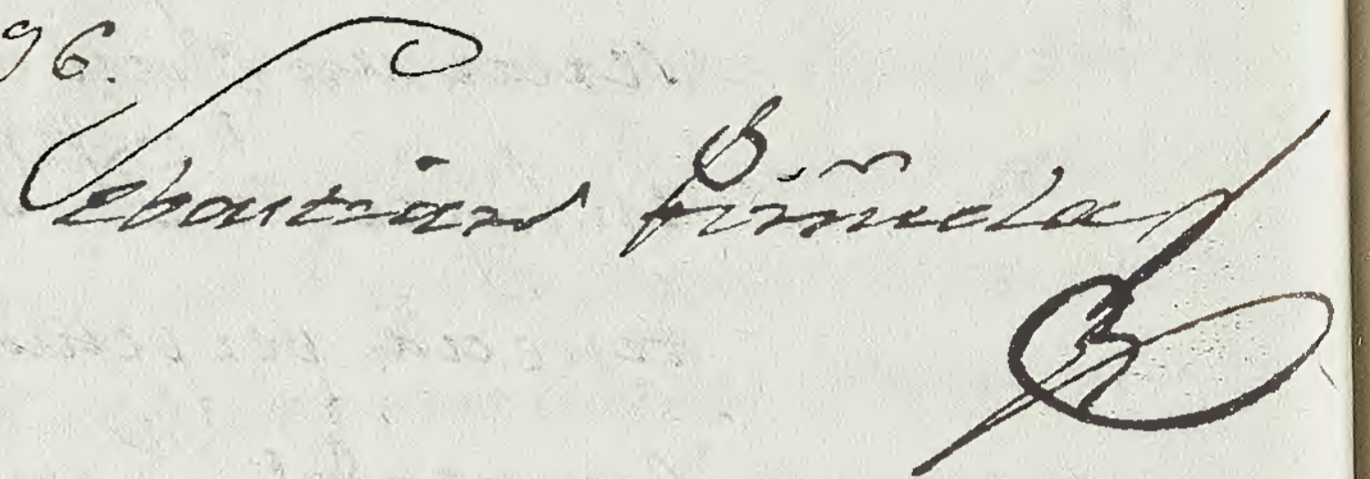 96.
Sebastian Piñuela